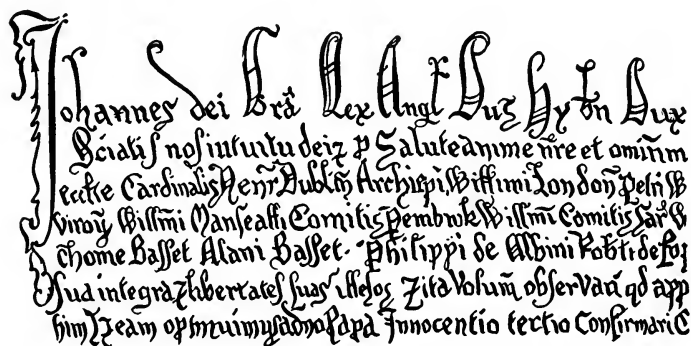 Johannes dei Grā Rex Angł Dux Hybn Dux
Sciatis nos intuitu dei ⁊ ꝑ Salute anime nr̄e et ominm
eccłie Cardinalis Henr̄ Dubłn Archiepi Willimi London̄ Petr̄ W
viroꝝ Willmi Manscalli Comitis Pembrok Willmi Comitis Sar̄ W
Thome Basset Alani Basset. Philippi de Albini Robti de Rop
Sua integra ⁊ libertates suas illesas ⁊ ita Volum̄ observari qd app
him ⁊ Eam optinuimus a dno Papa Innocentio tertio Confirmari E